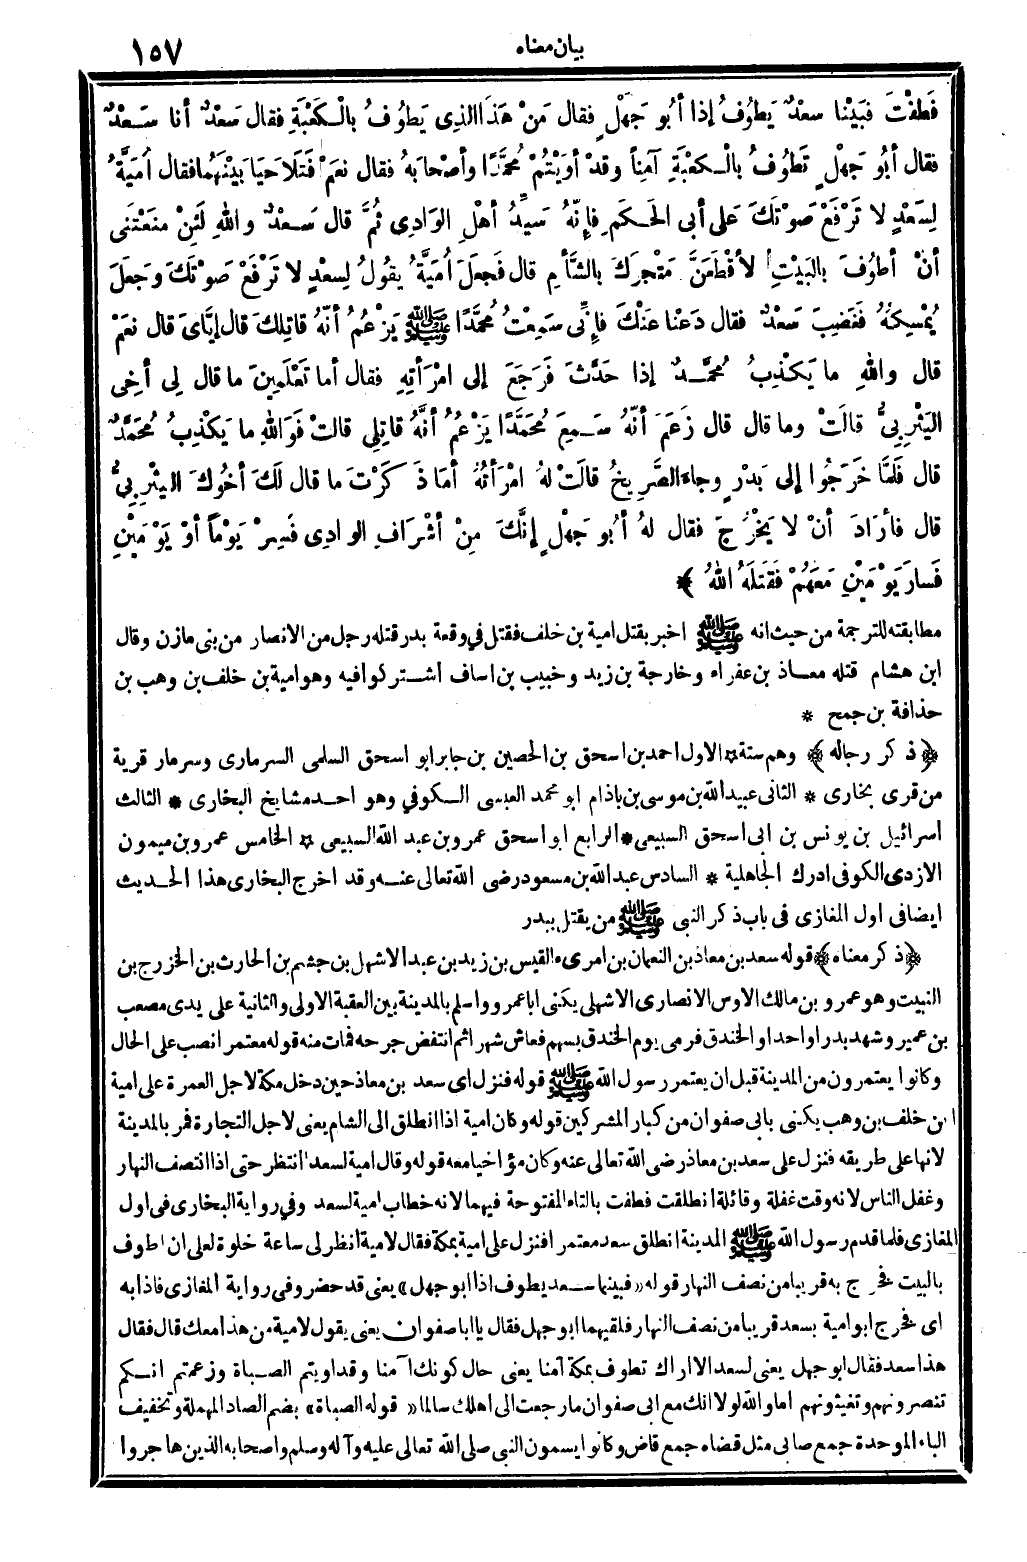 بيان معناه ١٥٧
فَطُفْتَ فَبَيْنَا سَعْدٌ يَطُوفُ إذَا أبُو جَهْلٍ فقال مَنْ هَذَا الذِى يَطُوفُ بالْكَعْبَةِ فقال سَعْدٌ أنا سَعْدٌ
فقال أبُو جَهْلٍ تَطُوفُ بالْكعْبَةِ آمِناً وقَدْ أوَيْتُمْ مُحَمَّدًا وأصْحَابَهُ فقال نعَمْ فَتَلَاحَيَا بَيْنَهُما فقال اُمَيَّةُ
لِسَعْدٍ لا تَرْفَعْ صَوْتَكَ عَلى أبى الحَكَمِ فإنَّهُ سَيِّدُ أهْلِ الوَادِى ثُمَّ قال سَعْدٌ واللهِ لَئِنْ منَعْتَنى
أنْ أطُوفَ بالبَيْتِ لأقْطَعَنَّ مَتْجرَكَ بالشَّأمِ قال فَجعَلَ اُمَيَّةُ يقُولُ لِسعْدٍ لا تَرْفَعْ صَوْتَكَ وجَعَلَ
يُمْسِكُهُ فغَضِبَ سَعْدٌ فقال دَعْنا عنْكَ فإنِّى سَمِعْتُ مُحمَّدًا ﷺ يَزْعُمُ أنَّهُ قاتِلكَ قال إيَّاىَ قال نعَمْ
قال واللهِ ما يَكْذِبُ مُحمَّدٌ إذا حَدَّثَ فَرَجَعَ إلى امْرَأتِهِ فقال أما تَعْلَمِينَ ما قال لِى أخِى
اليَثْرِبِىُّ قالَتْ وما قال قال زَعَمَ أنَّهُ سَمِعَ مُحَمَّدًا يَزْعُمُ أنَّهُ قاتِلِى قالتْ فَوَاللهِ ما يَكْذِبُ مُحمَّدٌ
قال فَلَمَّا خَرَجُوا إلى بَدْرٍ وجاءَ الصَّرِيخُ قالَتْ لهُ امْرَأتُهُ أمَا ذَكَرْتَ ما قال لَكَ أخُوكَ اليثْرِبِىُّ
قال فأرَادَ أنْ لا يَخْرُجَ فقال لهُ أبُو جَهْلٍ إنَّكَ مِنْ أشْرَافِ الوادِى فَسِرْ يَوْماً أوْ يَوْمَيْنِ
فَسارَ يَوْمَيْنِ مَعَهُمْ فقَتَلَهُ اللهُ ﴾
مطابقته للترجمة من حيث انه ﷺ اخبر بقتل امية بن خلف فقتل في وقعة بدر قتله رجل من الانصار من بنى مازن وقال
ابن هشام قتله معاذ بن عفراء وخارجة بن زيد وخبيب بن اساف اشتركوا فيه وهو امية بن خلف بن وهب بن
حذافة بن جمح *
﴿ ذكر رجاله ﴾ وهم ستة * الاول احمد بن اسحق بن الحصين بن جابر ابو اسحق السلمى السرمارى وسرمار قرية
من قرى بخارى * الثانى عبيد الله بن موسى بن باذام ابو محمد العبسى الكوفي وهو احد مشايخ البخارى * الثالث
اسرائيل بن يونس بن ابى اسحق السبيعى * الرابع ابو اسحق عمرو بن عبد الله السبيعى * الخامس عمرو بن ميمون
الازدى الكوفى ادرك الجاهلية * السادس عبد الله بن مسعود رضى الله تعالى عنه وقد اخرج البخارى هذا الحديث
ايضا فى اول المغازى فى باب ذكر النبى ﷺ من يقتل ببدر
﴿ ذكر معناه ﴾ قوله سعد بن معاذ بن النعمان بن امرىء القيس بن زيد بن عبد الاشهل بن جشم بن الحارث بن الخزرج بن
النبيت وهو عمرو بن مالك الاوس الانصارى الاشهلى يكنى ابا عمرو واسلم بالمدينة بين العقبة الاولى والثانية على يدى مصعب
بن عمير وشهد بدرا واحدا والخندق فرمى يوم الخندق بسهم فعاش شهرا ثم انتفض جرحه فمات منه قوله معتمرا نصب على الحال
وكانوا يعتمرون من المدينة قبل ان يعتمر رسول الله ﷺ قوله فنزل اى سعد بن معاذ حين دخل مكة لاجل العمرة على امية
ابن خلف بن وهب يكنى بابى صفوان من كبار المشركين قوله وكان امية اذا انطلق الى الشام يعنى لاجل التجارة فمر بالمدينة
لانها على طريقه فنزل على سعد بن معاذ رضى الله تعالى عنه وكان مؤاخيا معه قوله وقال امية لسعد انتظر حتى اذا انتصف النهار
وغفل الناس لانه وقت غفلة وقائلة انطلقت فطفت بالتاء المفتوحة فيهما لانه خطاب امية لسعد وفي رواية البخارى فى اول
المغازى فلما قدم رسول الله ﷺ المدينة انطلق سعد معتمرا فنزل على امية بمكة فقال لامية انظر لى ساعة خلوة لعلى ان اطوف
بالبيت فخرج به قريبا من نصف النهار قوله «فبينما سعد يطوف اذا ابو جهل» يعنى قد حضر وفى رواية المغازى فاذا به
اى فخرج ابو امية بسعد قريبا من نصف النهار فلقيهما ابو جهل فقال يا ابا صفوان يعنى يقول لامية من هذا معك قال فقال
هذا سعد فقال ابو جهل يعنى لسعد الا اراك تطوف بمكة آمنا يعنى حال كونك آمنا وقد اويتم الصباة وزعمتم انكم
تنصرونهم وتغيثونهم اما والله لولا انك مع ابى صفوان ما رجعت الى اهلك سالما «قوله الصباة» بضم الصاد المهملة وتخفيف
الباء الموحدة جمع صابى مثل قضاه جمع قاض وكانوا يسمون النبى صلى الله تعالى عليه وآله وسلم واصحابه الذين هاجروا